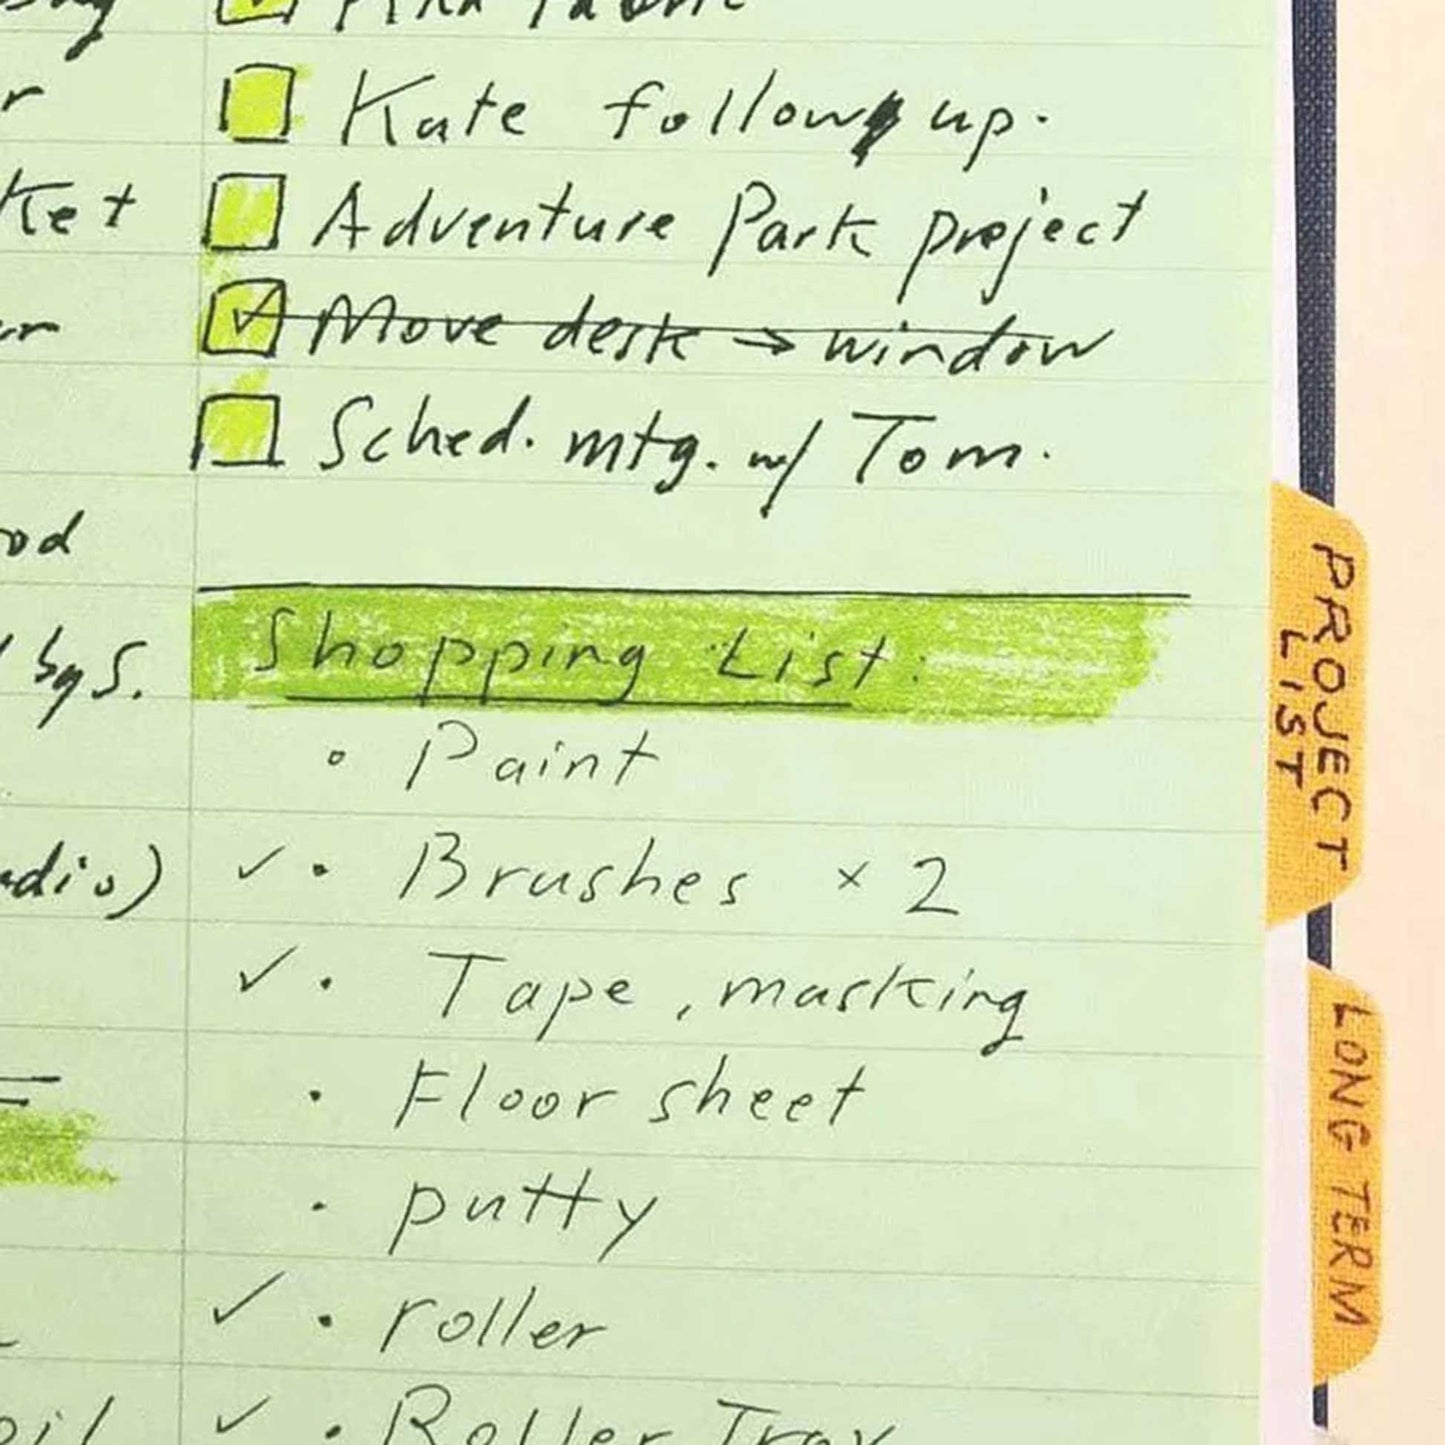 r
Ket
od
by S.
adio)
oil
Find fabric
Kate follow up.
Adventure Park project
Move desk → window
Sched. mtg. w/ Tom.
Shopping List:
• Paint
✓ • Brushes × 2
✓ • Tape, masking
• Floor sheet
• putty
✓ • roller
✓ • Roller Tray
PROJECT
LIST
LONG TERM